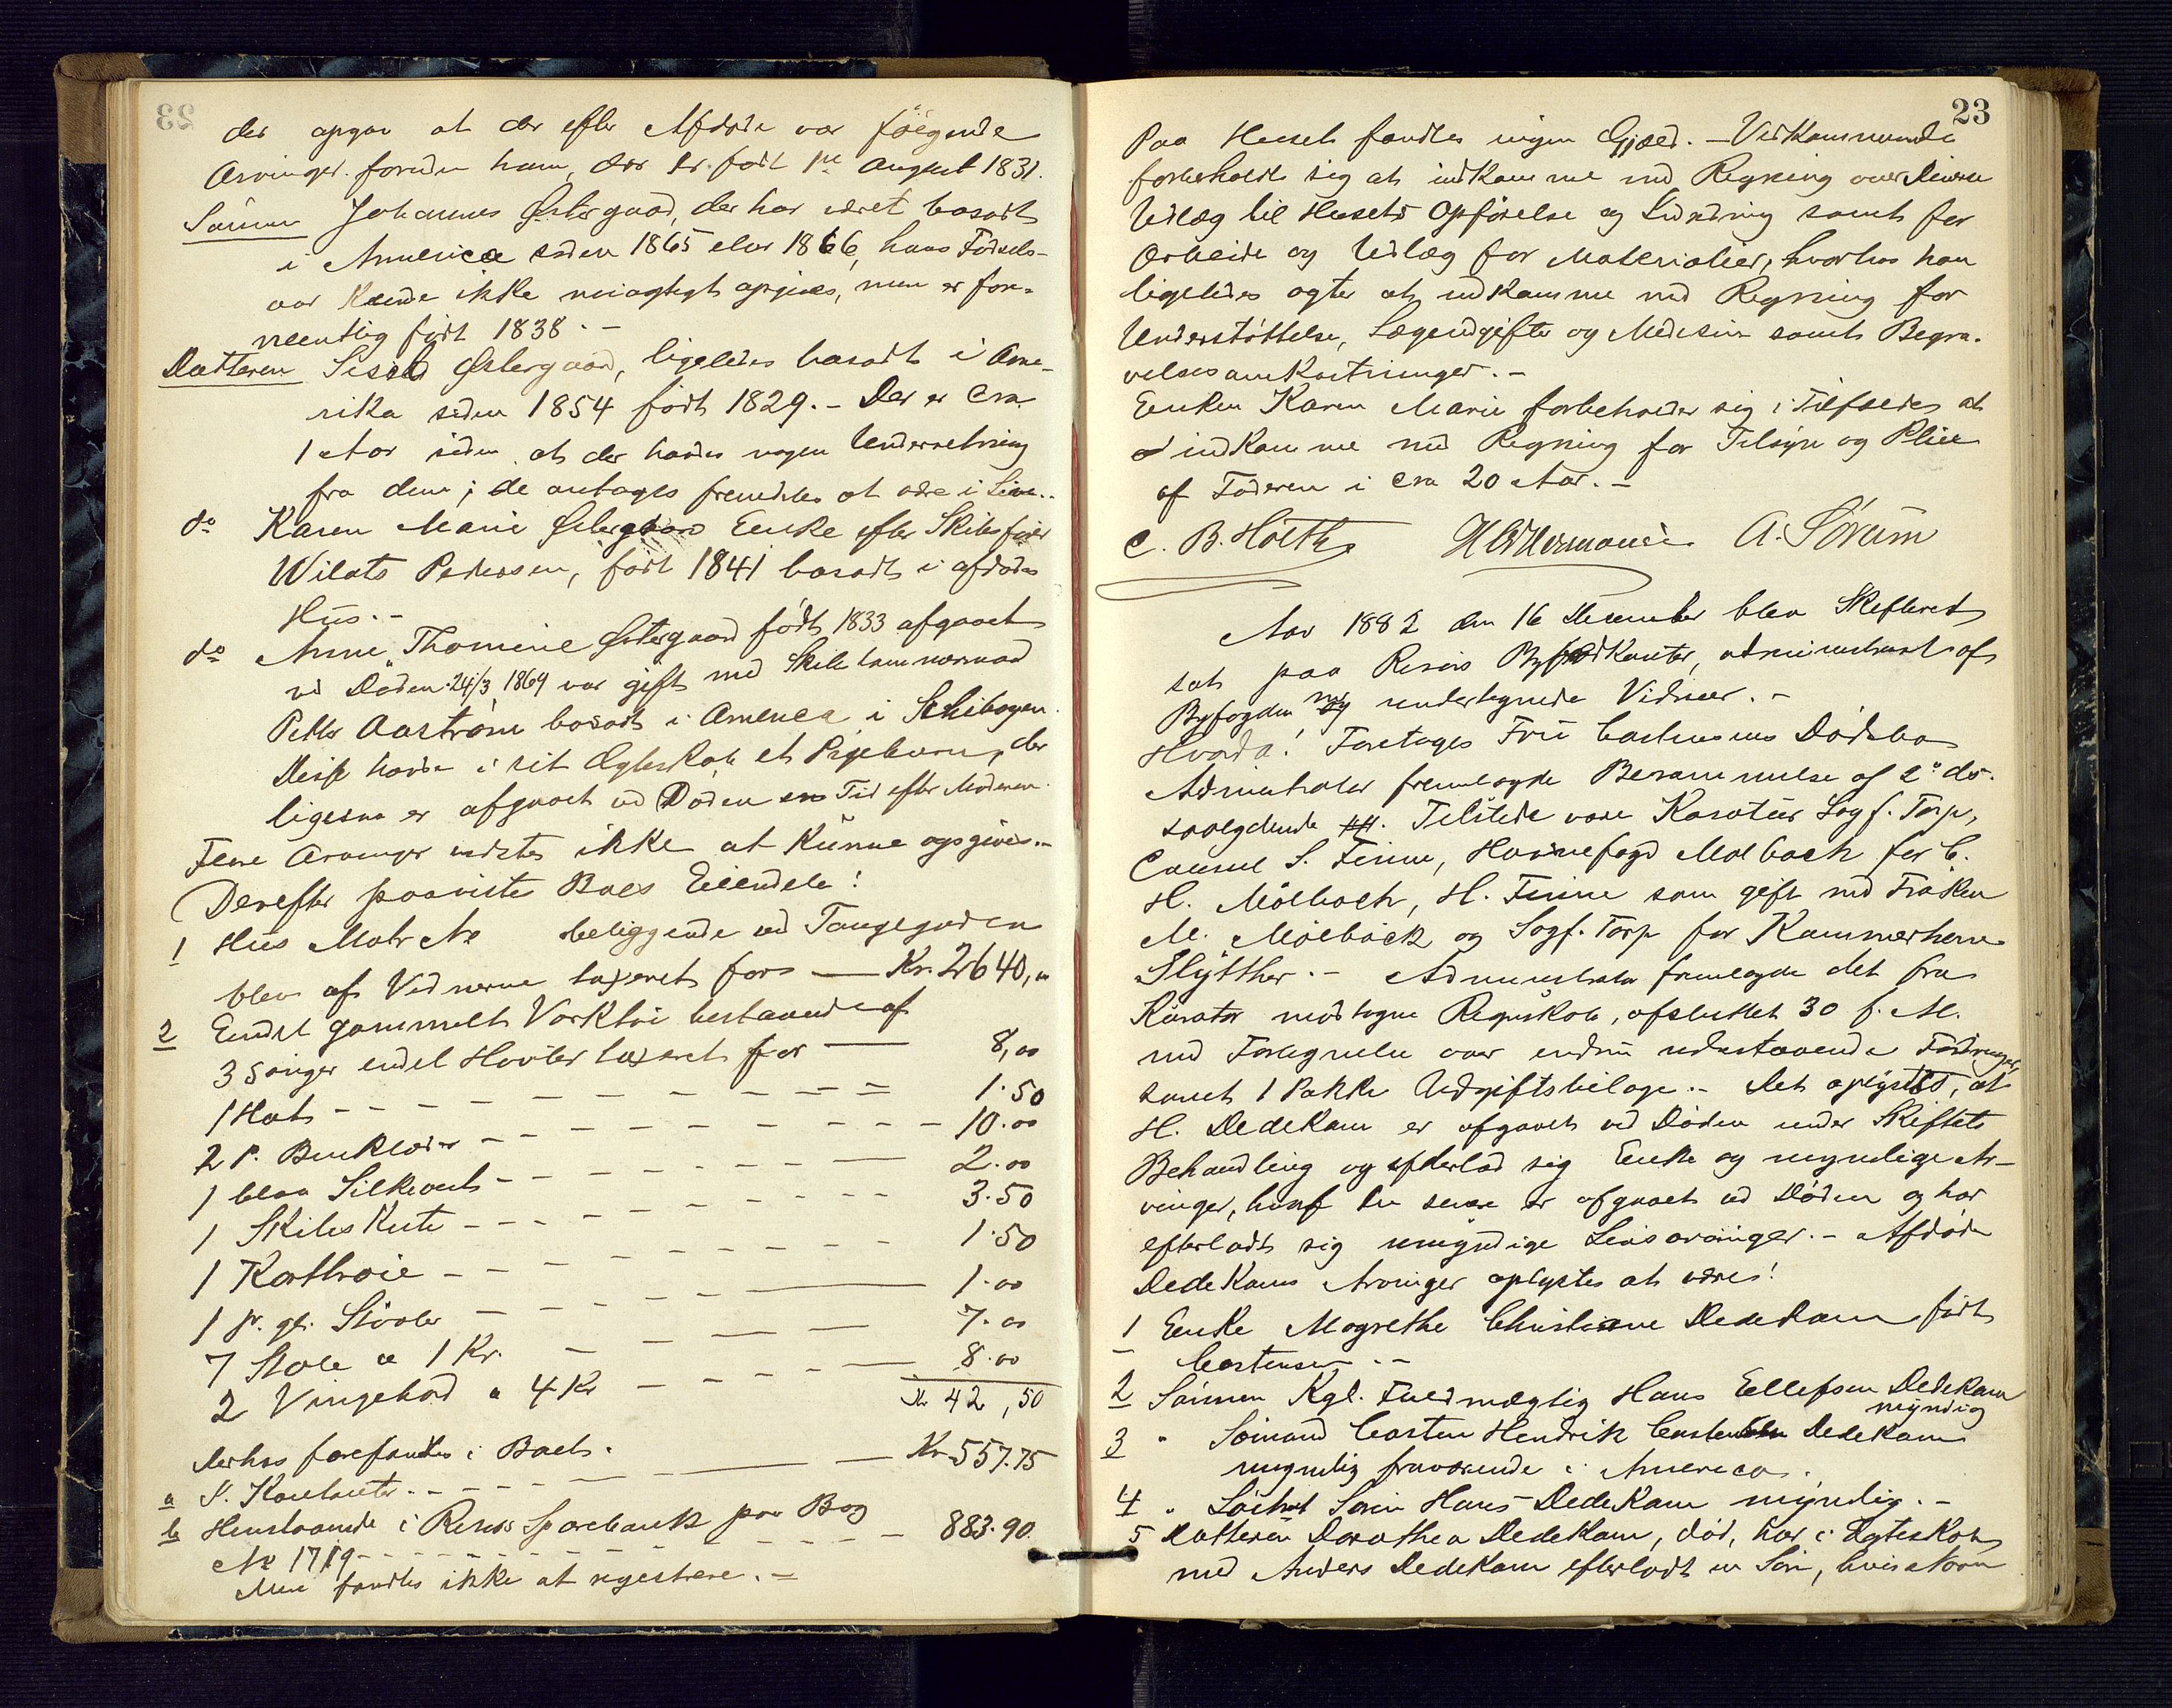 der opgav at der efter Afdøde var følgende
Arvinger foruden ham, der er født 1ste August 1831.
Sønnen Johannes Østergaard, der har været bosadt
i America siden 1865 eler 1866, hans Fødsels-
aar kunde ikke nøiagtigt opgives, men er for-
mentlig født 1838.-
Datteren Sissel Østergaard, ligeledes bosadt i Ame-
rika siden 1854 født 1829.- Der er Cra
1 Aar siden at der havdes nogen Underretning
fra dem; de antages fremdeles at være i Live.-
do Karen Marie Østergaard Enke efter Skibsfører
Wilats Pedersen, født 1841 bosadt i afdødes
Hus.-
do Anne Thomine Østergaard født 1833 afgaaet
ved Døden 24/3 1869 var gift med Skibstømmermand
Petter Aastrøm bosadt i America i
Disse havde i sit Egteskab et Pigebarn, der
ligesaa er afgaaet ved Døden en Tid efter Moderen.
Flere Arvinger vidstes ikke at kunne opgives.-
Derefter paaviste Boets Eiendele!
1 Hus Matr No beliggende ved Tangegaden
blev af Vidnerne taxeret for - Kr. 2640,00
2 Endel gammelt Værktøi bestaaende af
3 Sauger endel Høvler taxeret for - 8,00
1 Hat - - - 1.50
2 P. Benklæder - - - 10.00
1 blaa Silkevest - - - 2.00
1 Skibskiste - - - 3.50
1 Korttrøie - - - 1.50
1 Pr. gl. Støvler - - - 1.00
7 Stole a 1 Kr. - - - 7.00
2 Vingebord a 4 Kr - - - 8.00
Kr 42,50
Derhos forefandtes i Boet.
a P. Kontanter - - - Kr 557.75
b Henstaaende i Risørs Sparebank paa Bog
No 1719 - - - 883.90
Mere fandtes ikke at registrere.-
23
Paa Huset fandtes ingen Gjæld.- Vedkommende
forbeholdt sig at indkomme med Regning over Diverse
Udlæg til Husets Opførelse og Indredning samt for
Arbeide og Udlæg for Materialier, hvorhos han
ligeledes agter at indkomme med Regning for
Understøttelse, Lægeudgifter og Medisin samt Begra-
velsesomkostninger.-
Enken Karen Marie forbeholder sig i Tilfælde at
indkomme med Regning for Tilsyn og Pleie
af Faderen i Cra 20 Aar.-
C. B. Holth A. Sørum
Aar 1882 den 16 December blev Skifteret
sat paa Risørs Byfodkontor, administreret af
Byfogden med undertegnede Vidner.-
Hvorda! Foretoges Fru Carstensens Dødsbo
Administrator fremlagde Berammelse af 2 ds.
saalydende ##. Tilstede vare Kurator Sagf. Torp,
Consul S. Finne, Havnefogd Mølbach for C.
H. Mølbach, H. Finne som gift med Frøken
M. Mølbach og Sagf. Torp for Kammerherre
Slÿtther.- Administrator fremlagde det fra
Kurator modtagne Regnskab, afsluttet 30 f. M.
med Fortegnelse over endnu udestaaende Fordringer,
samt 1 Pakke Udgiftsbilage.- Det oplystes, at
H. Dedekam er afgaaet ved Døden under Skiftets
Behandling og efterlod sig Enke og myndige Ar-
vinger, hvoraf En senere er afgaaet ved Døden og har
efterladt sig umyndige Livsarvinger.- Afdøde
Dedekams Arvinger oplystes at være!
1 Enke Magrethe Christiane Dedekam født
Carstensen.-
2 Sønnen Kgl. Fuldmægtig Hans Ellefsen Dedekam
myndig
3 " Sømand Carsten Hendrik Carstensen Dedekam
myndig fraværende i America.
4 " Søren Hans Dedekam myndig.-
5 Datteren Dorothea Dedekam, død, har i Egteskab
med Anders Dedekam efterladt en Søn, hvis Navn